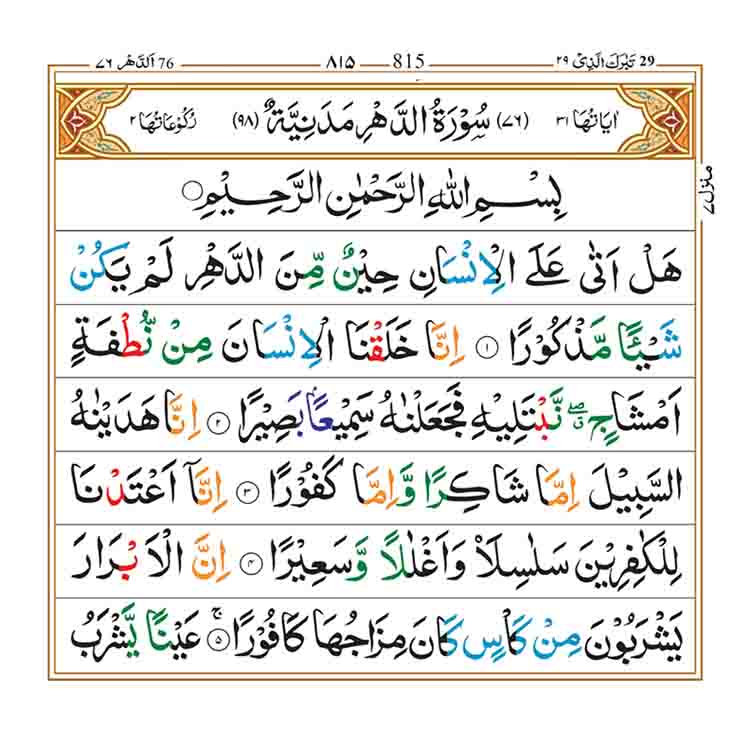 29 تَبٰرَكَ الَّذِىْ ٢٩ 815 ٨١٥ 76 اَلدَّهْر ٧٦
اٰيَاتُهَا ٣١ (٧٦) سُوْرَةُ الدَّهْرِ مَدَنِيَّةٌ (٩٨) رُكُوْعَاتُهَا ٢
منزل ٧
بِسْمِ اللّٰهِ الرَّحْمٰنِ الرَّحِيْمِ
هَلْ اَتٰى عَلَى الْاِنْسَانِ حِيْنٌ مِّنَ الدَّهْرِ لَمْ يَكُنْ
شَيْئًا مَّذْكُوْرًا ۝١ اِنَّا خَلَقْنَا الْاِنْسَانَ مِنْ نُّطْفَةٍ
اَمْشَاجٍ ۖق نَّبْتَلِيْهِ فَجَعَلْنٰهُ سَمِيْعًۢا بَصِيْرًا ۝٢ اِنَّا هَدَيْنٰهُ
السَّبِيْلَ اِمَّا شَاكِرًا وَّاِمَّا كَفُوْرًا ۝٣ اِنَّاۤ اَعْتَدْنَا
لِلْكٰفِرِيْنَ سَلٰسِلَا۟ وَاَغْلٰلًا وَّسَعِيْرًا ۝٤ اِنَّ الْاَبْرَارَ
يَشْرَبُوْنَ مِنْ كَاْسٍ كَانَ مِزَاجُهَا كَافُوْرًا ۝٥ۚ عَيْنًا يَّشْرَبُ